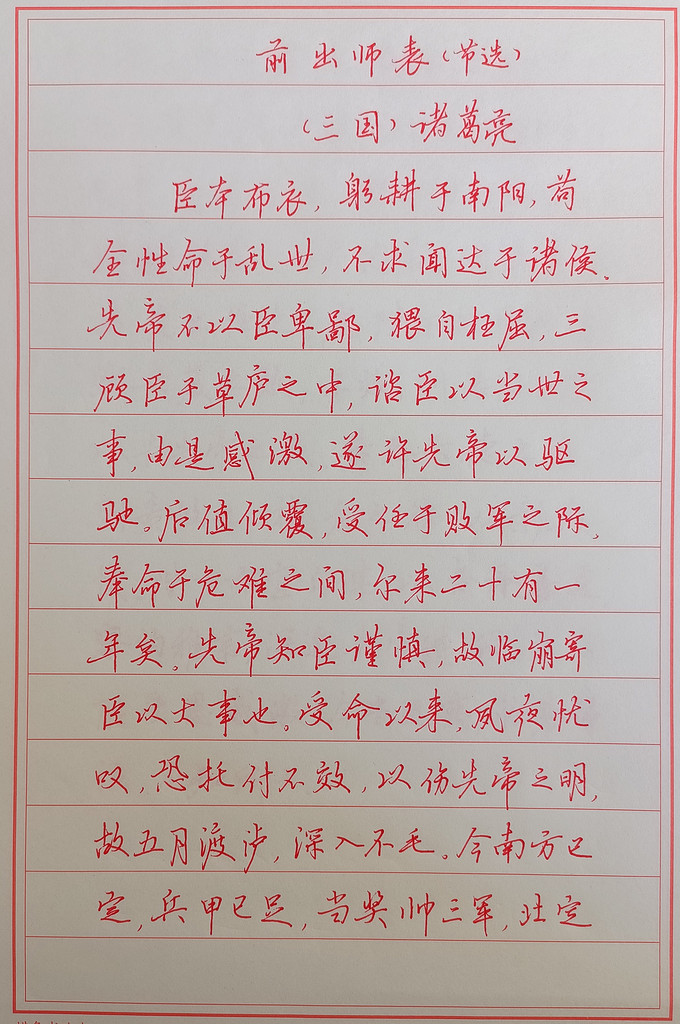 前出师表(节选)
(三国)诸葛亮
臣本布衣,躬耕于南阳,苟
全性命于乱世,不求闻达于诸侯、
先帝不以臣卑鄙,猥自枉屈,三
顾臣于草庐之中,谘臣以当世之
事,由是感激,遂许先帝以驱
驰。后值倾覆,受任于败军之际,
奉命于危难之间,尔来二十有一
年矣。先帝知臣谨慎,故临崩寄
臣以大事也。受命以来,夙夜忧
叹,恐托付不效,以伤先帝之明,
故五月渡泸,深入不毛。今南方已
定,兵甲已足,当奖帅三军,北定